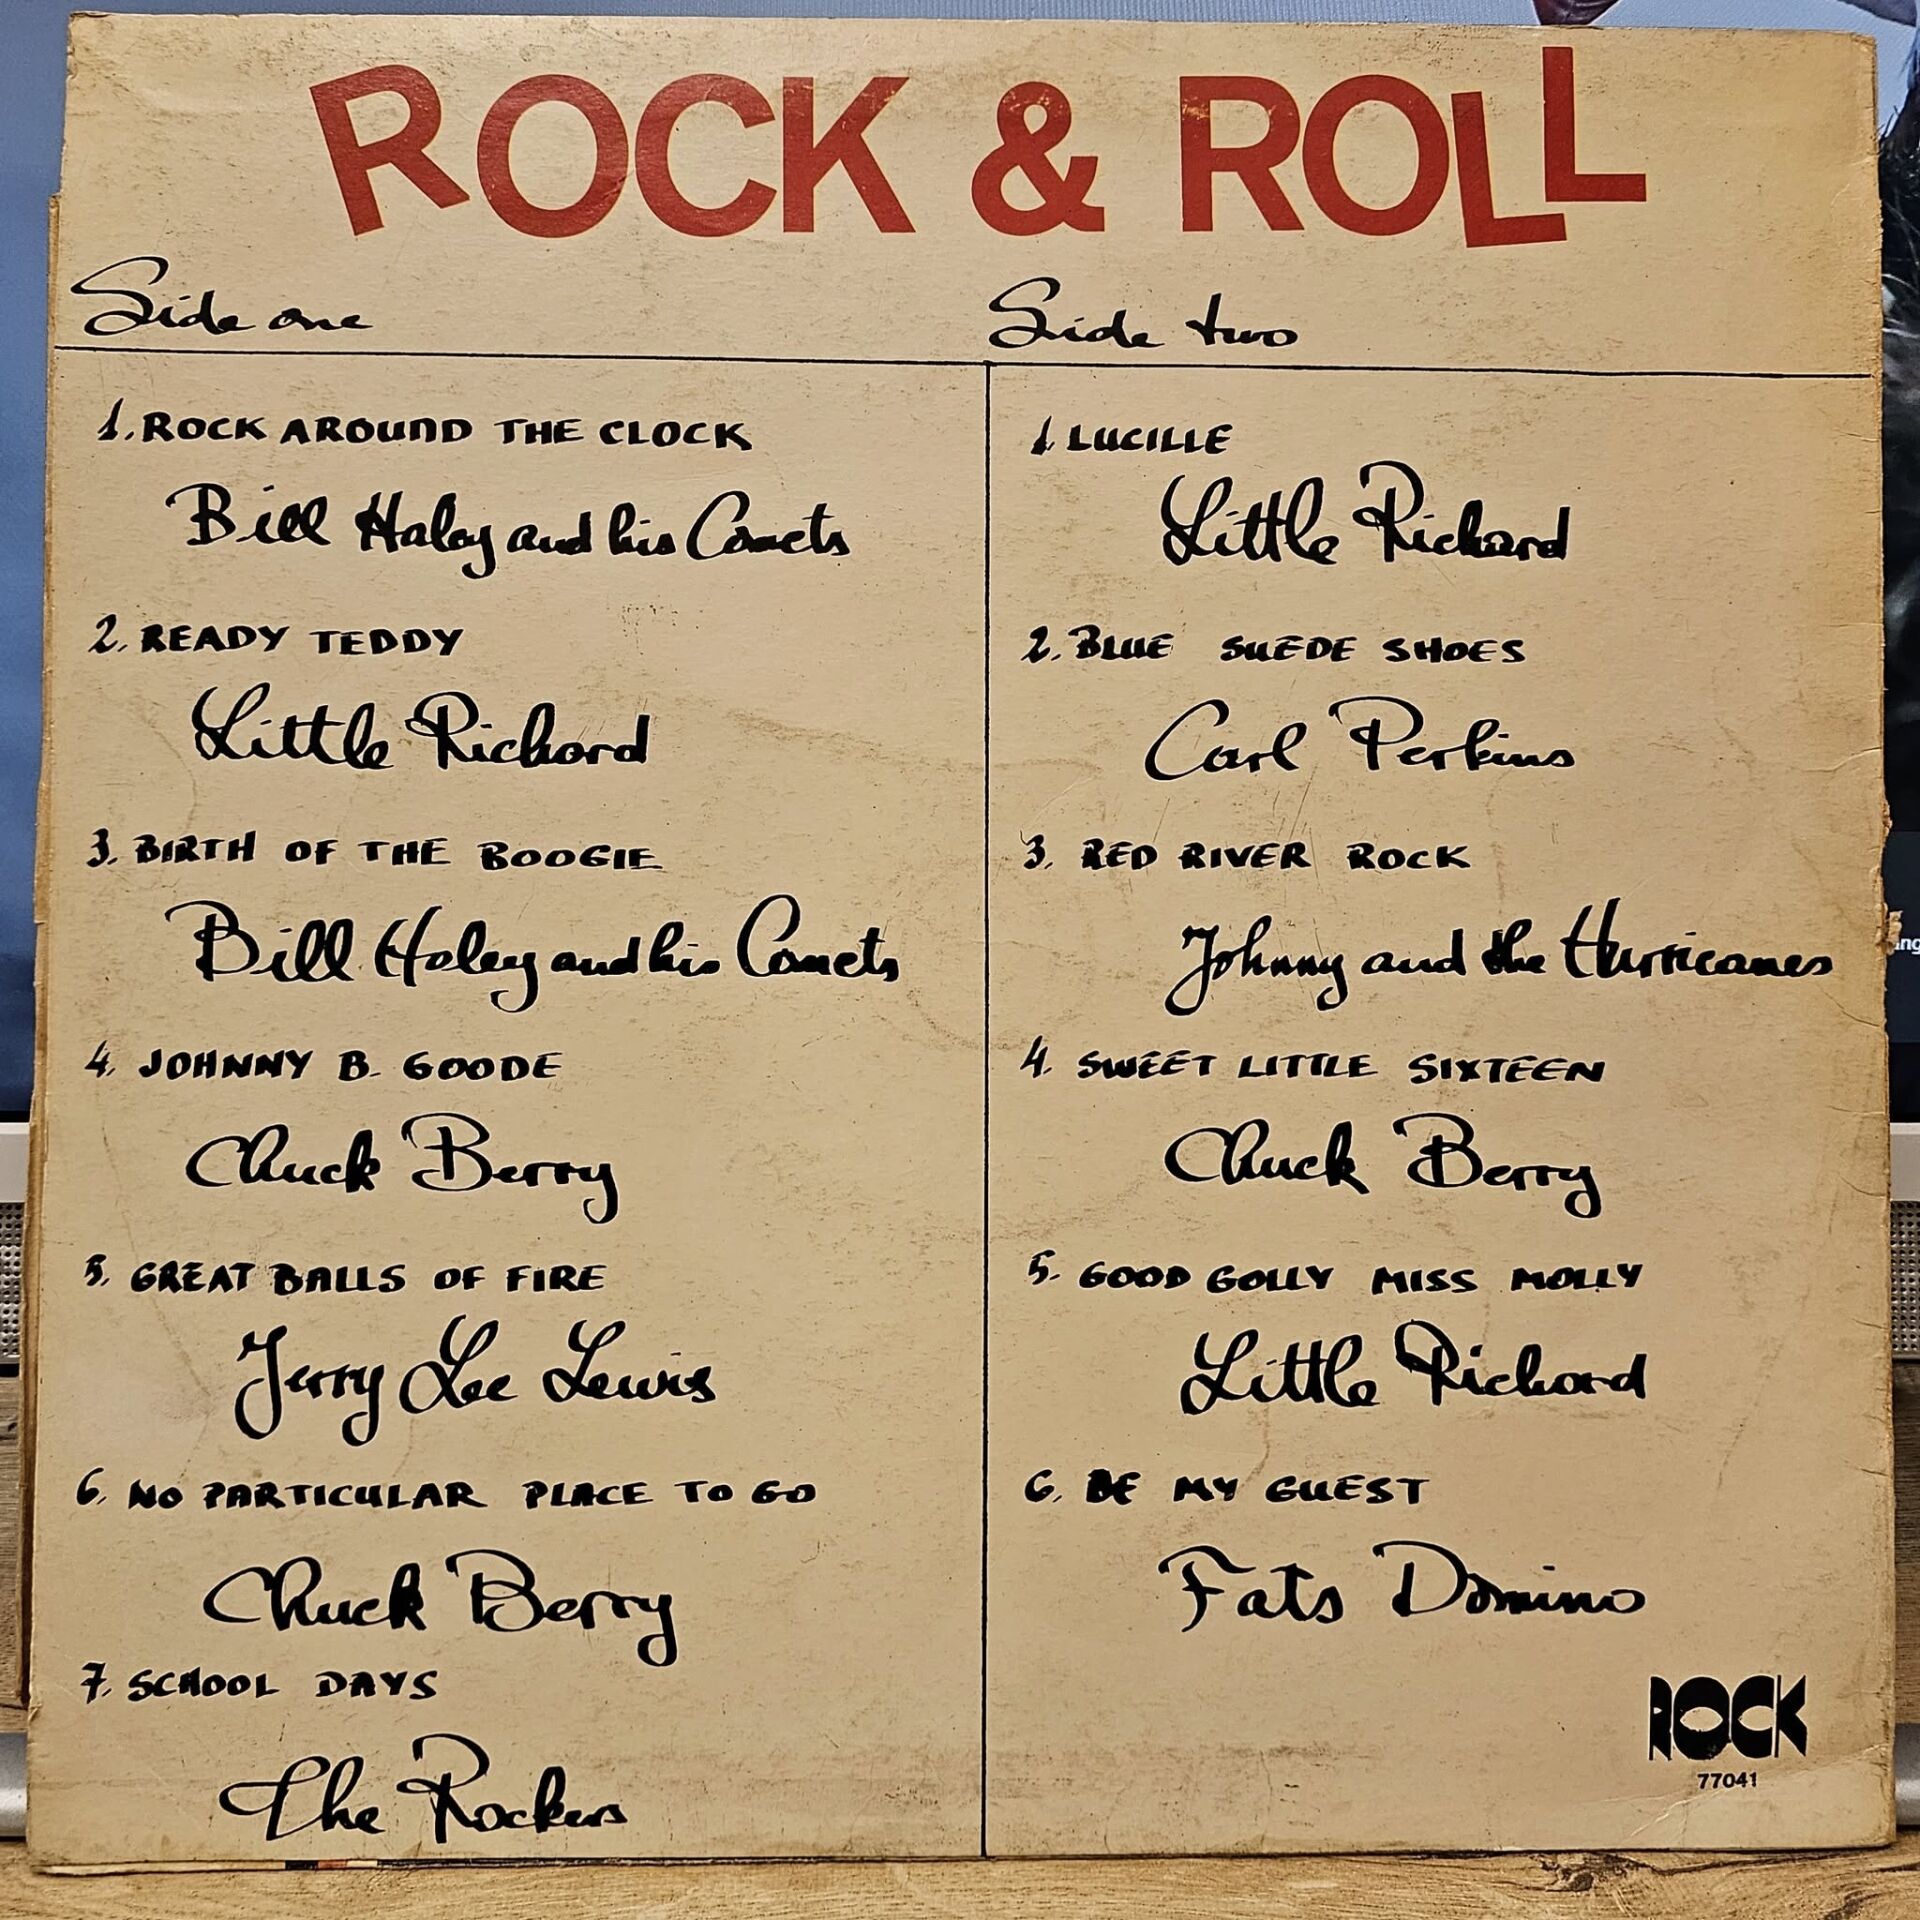 ROCK & ROLL
Side one
1. ROCK AROUND THE CLOCK
Bill Haley and his Comets
2. READY TEDDY
Little Richard
3. BIRTH OF THE BOOGIE
Bill Haley and his Comets
4. JOHNNY B. GOODE
Chuck Berry
5. GREAT BALLS OF FIRE
Jerry Lee Lewis
6. NO PARTICULAR PLACE TO GO
Chuck Berry
7. SCHOOL DAYS
The Rockers
Side two
1. LUCILLE
Little Richard
2. BLUE SUEDE SHOES
Carl Perkins
3. RED RIVER ROCK
Johnny and the Hurricanes
4. SWEET LITTLE SIXTEEN
Chuck Berry
5. GOOD GOLLY MISS MOLLY
Little Richard
6. BE MY GUEST
Fats Domino
ROCK
77041